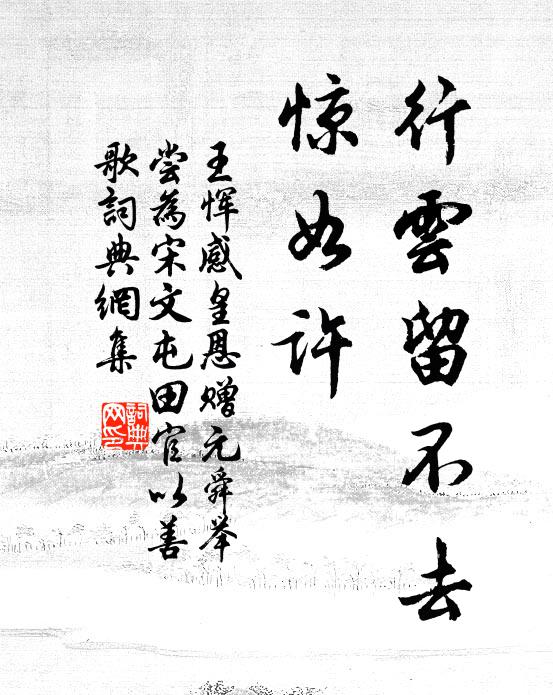 行雲留不去
惊如许
王恽感皇恩赠元舜举
尝為宋文屯田官以善
歌詞典網集
詞典网印